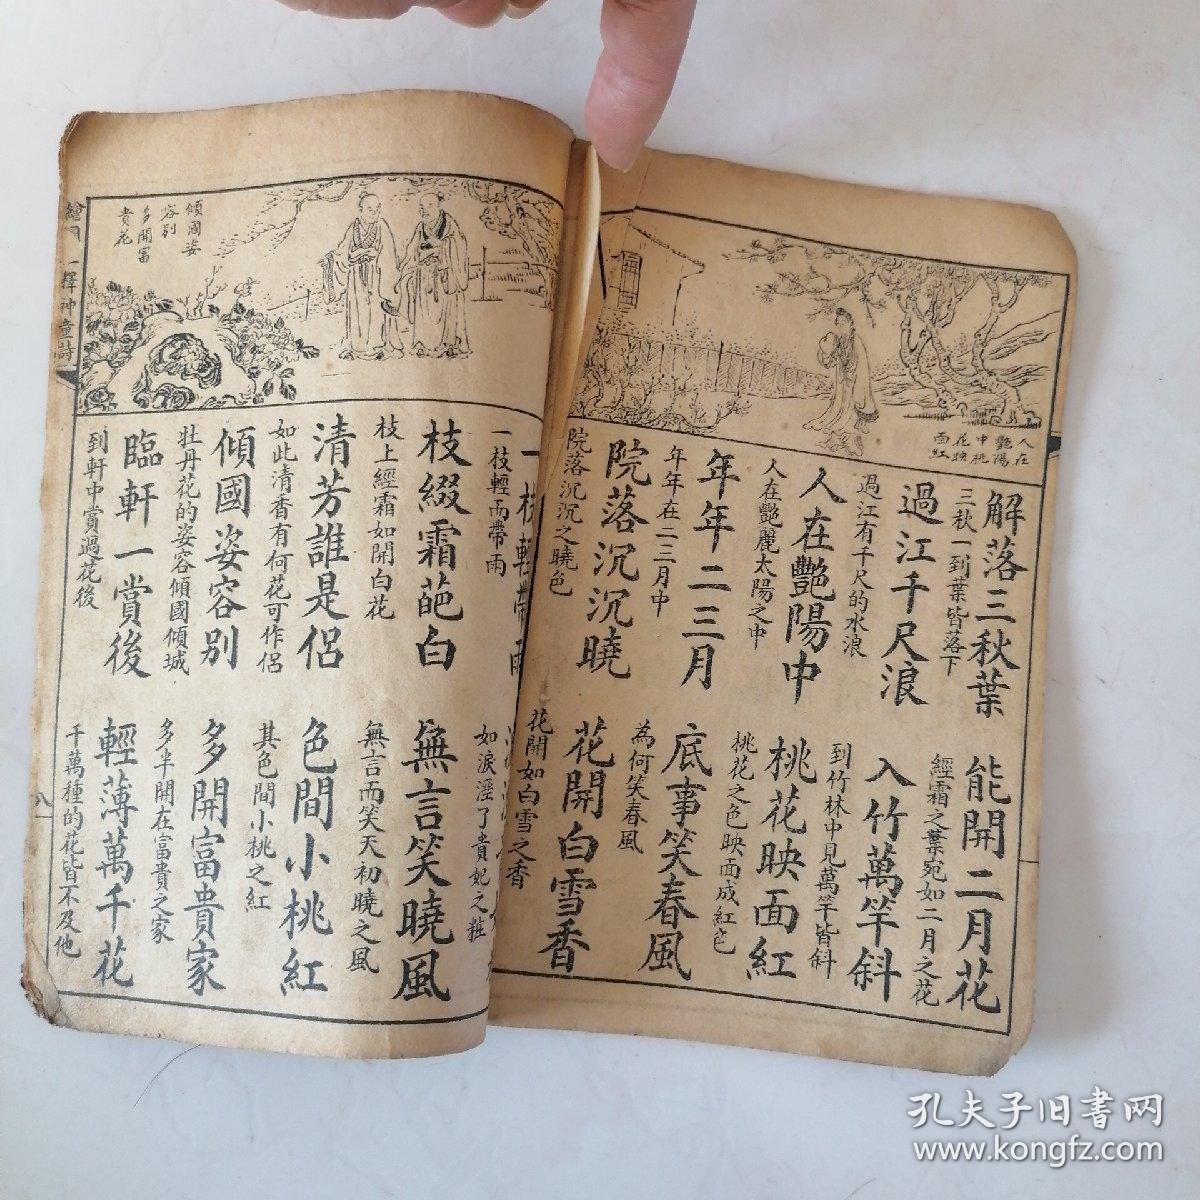 人在
艷陽
中桃
花映
面紅
解落三秋葉
三秋一到葉皆落下
能開二月花
經霜之葉宛如二月之花
過江千尺浪
過江有千尺的水浪
入竹萬竿斜
到竹林中見萬竿皆斜
人在艷陽中
人在艷麗太陽之中
桃花映面紅
桃花之色映面成紅色
年年二三月
年年在二三月中
底事笑春風
為何笑春風
院落沉沉曉
院落沉沉之曉色
花開白雪香
花開如白雪之香
傾國姿
容別
多開富
貴花
一枝輕帶雨
一枝輕而帶雨
如淚溼了貴妃之粧
枝綴霜葩白
枝上經霜如開白花
無言笑曉風
無言而笑天初曉之風
清芳誰是侶
如此清香有何花可作侶
色間小桃紅
其色間小桃之紅
傾國姿容別
牡丹花的姿容傾國傾城
多開富貴家
多半開在富貴之家
臨軒一賞後
到軒中賞過花後
輕薄萬千花
千萬種的花皆不及他
繪圖
釋神童詩
八
孔夫子旧书网
www.kongfz.com